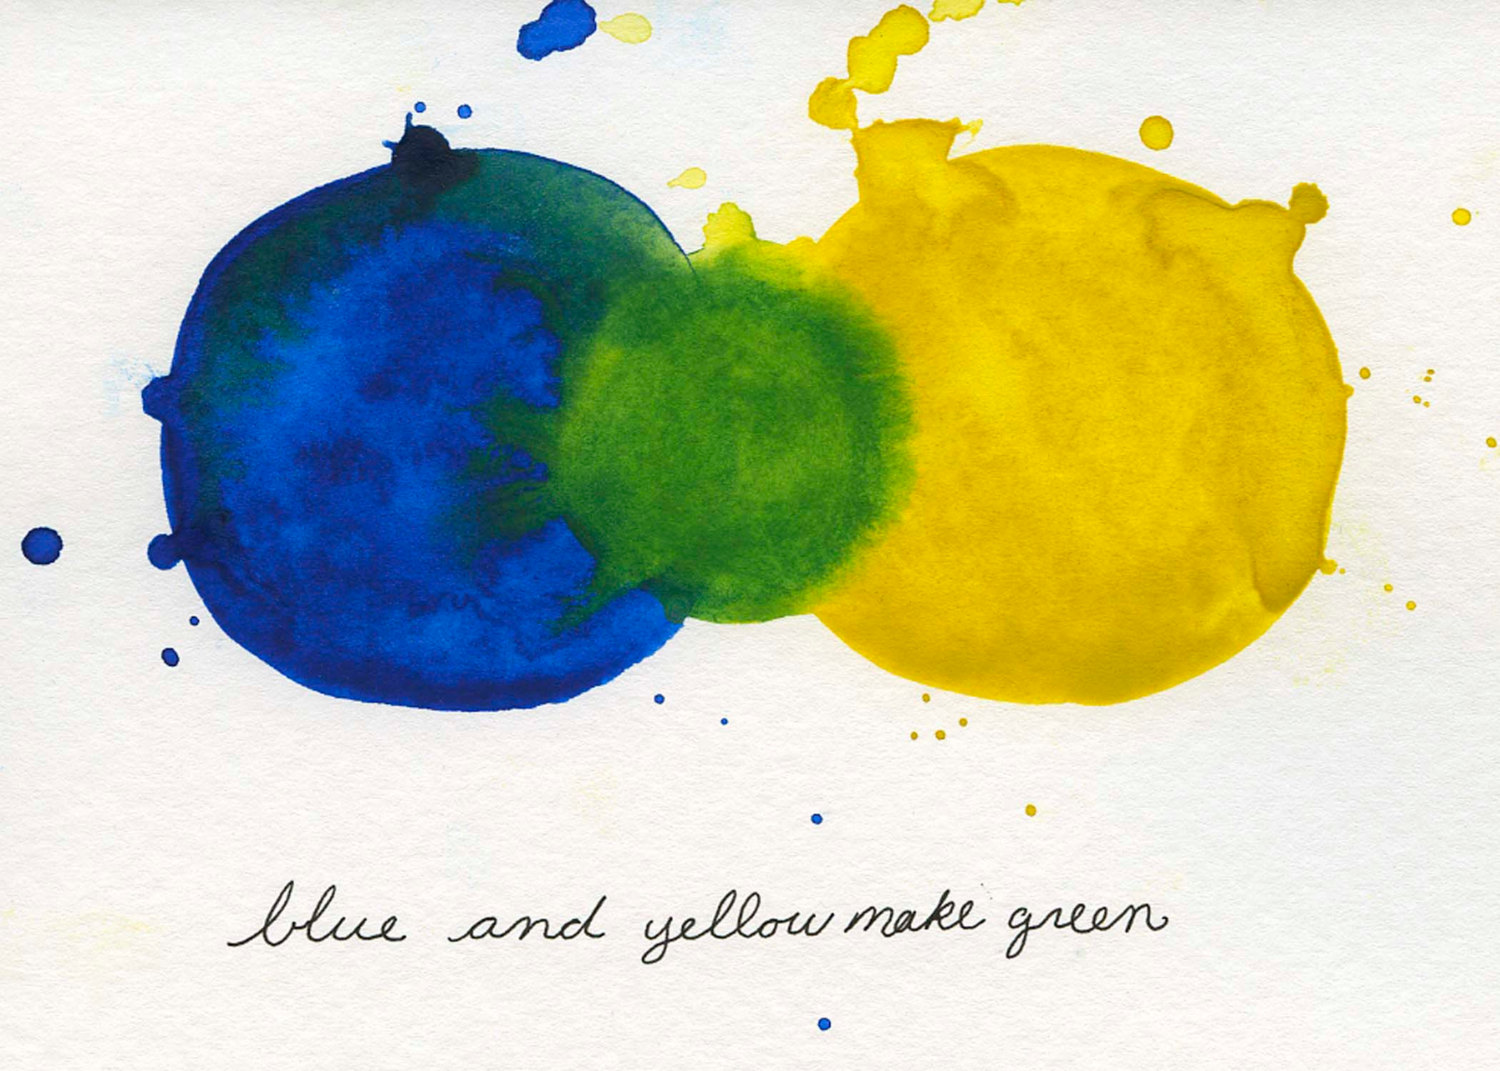 blue and yellow make green